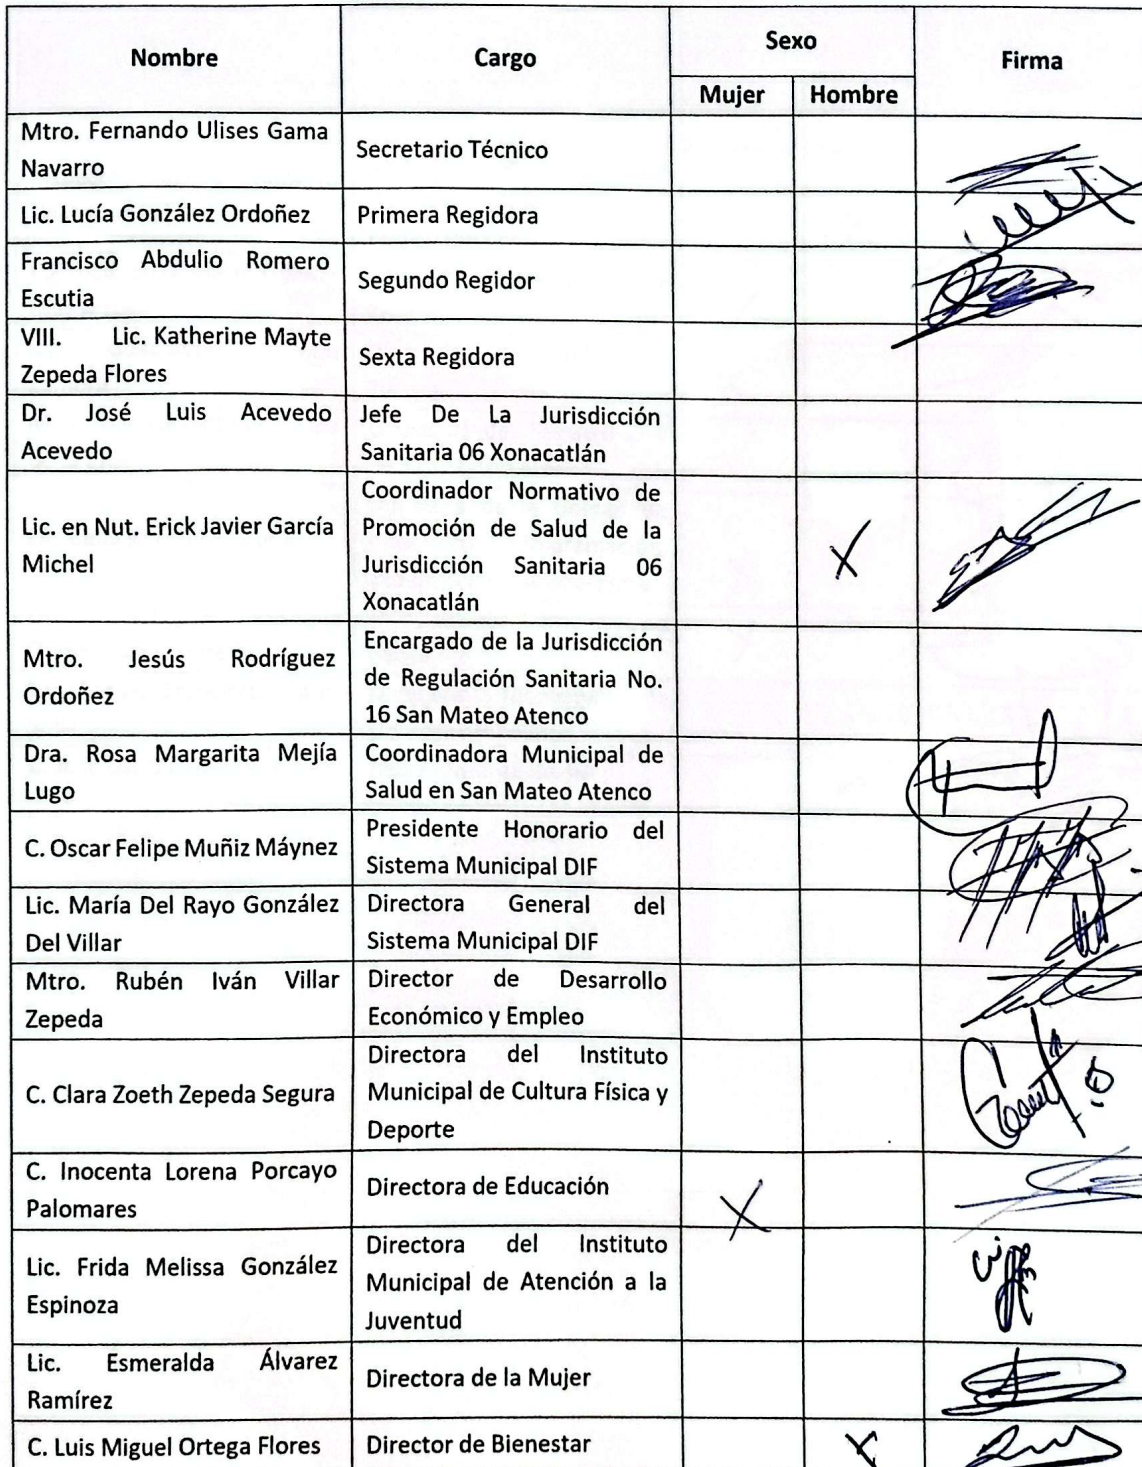 Nombre Cargo Sexo Firma
Mujer Hombre
Mtro. Fernando Ulises Gama
Navarro
Secretario Técnico
Lic. Lucía González Ordoñez
Primera Regidora
Francisco Abdulio Romero
Escutia
Segundo Regidor
VIII. Lic. Katherine Mayte
Zepeda Flores
Sexta Regidora
Dr. José Luis Acevedo
Acevedo
Jefe De La Jurisdicción
Sanitaria 06 Xonacatlán
Lic. en Nut. Erick Javier García
Michel
Coordinador Normativo de
Promoción de Salud de la
Jurisdicción Sanitaria 06
Xonacatlán
X
Mtro. Jesús Rodríguez
Ordoñez
Encargado de la Jurisdicción
de Regulación Sanitaria No.
16 San Mateo Atenco
Dra. Rosa Margarita Mejía
Lugo
Coordinadora Municipal de
Salud en San Mateo Atenco
C. Oscar Felipe Muñiz Máynez
Presidente Honorario del
Sistema Municipal DIF
Lic. María Del Rayo González
Del Villar
Directora General del
Sistema Municipal DIF
Mtro. Rubén Iván Villar
Zepeda
Director de Desarrollo
Económico y Empleo
C. Clara Zoeth Zepeda Segura
Directora del Instituto
Municipal de Cultura Física y
Deporte
C. Inocenta Lorena Porcayo
Palomares
Directora de Educación
X
Lic. Frida Melissa González
Espinoza
Directora del Instituto
Municipal de Atención a la
Juventud
Lic. Esmeralda Álvarez
Ramírez
Directora de la Mujer
C. Luis Miguel Ortega Flores
Director de Bienestar
X